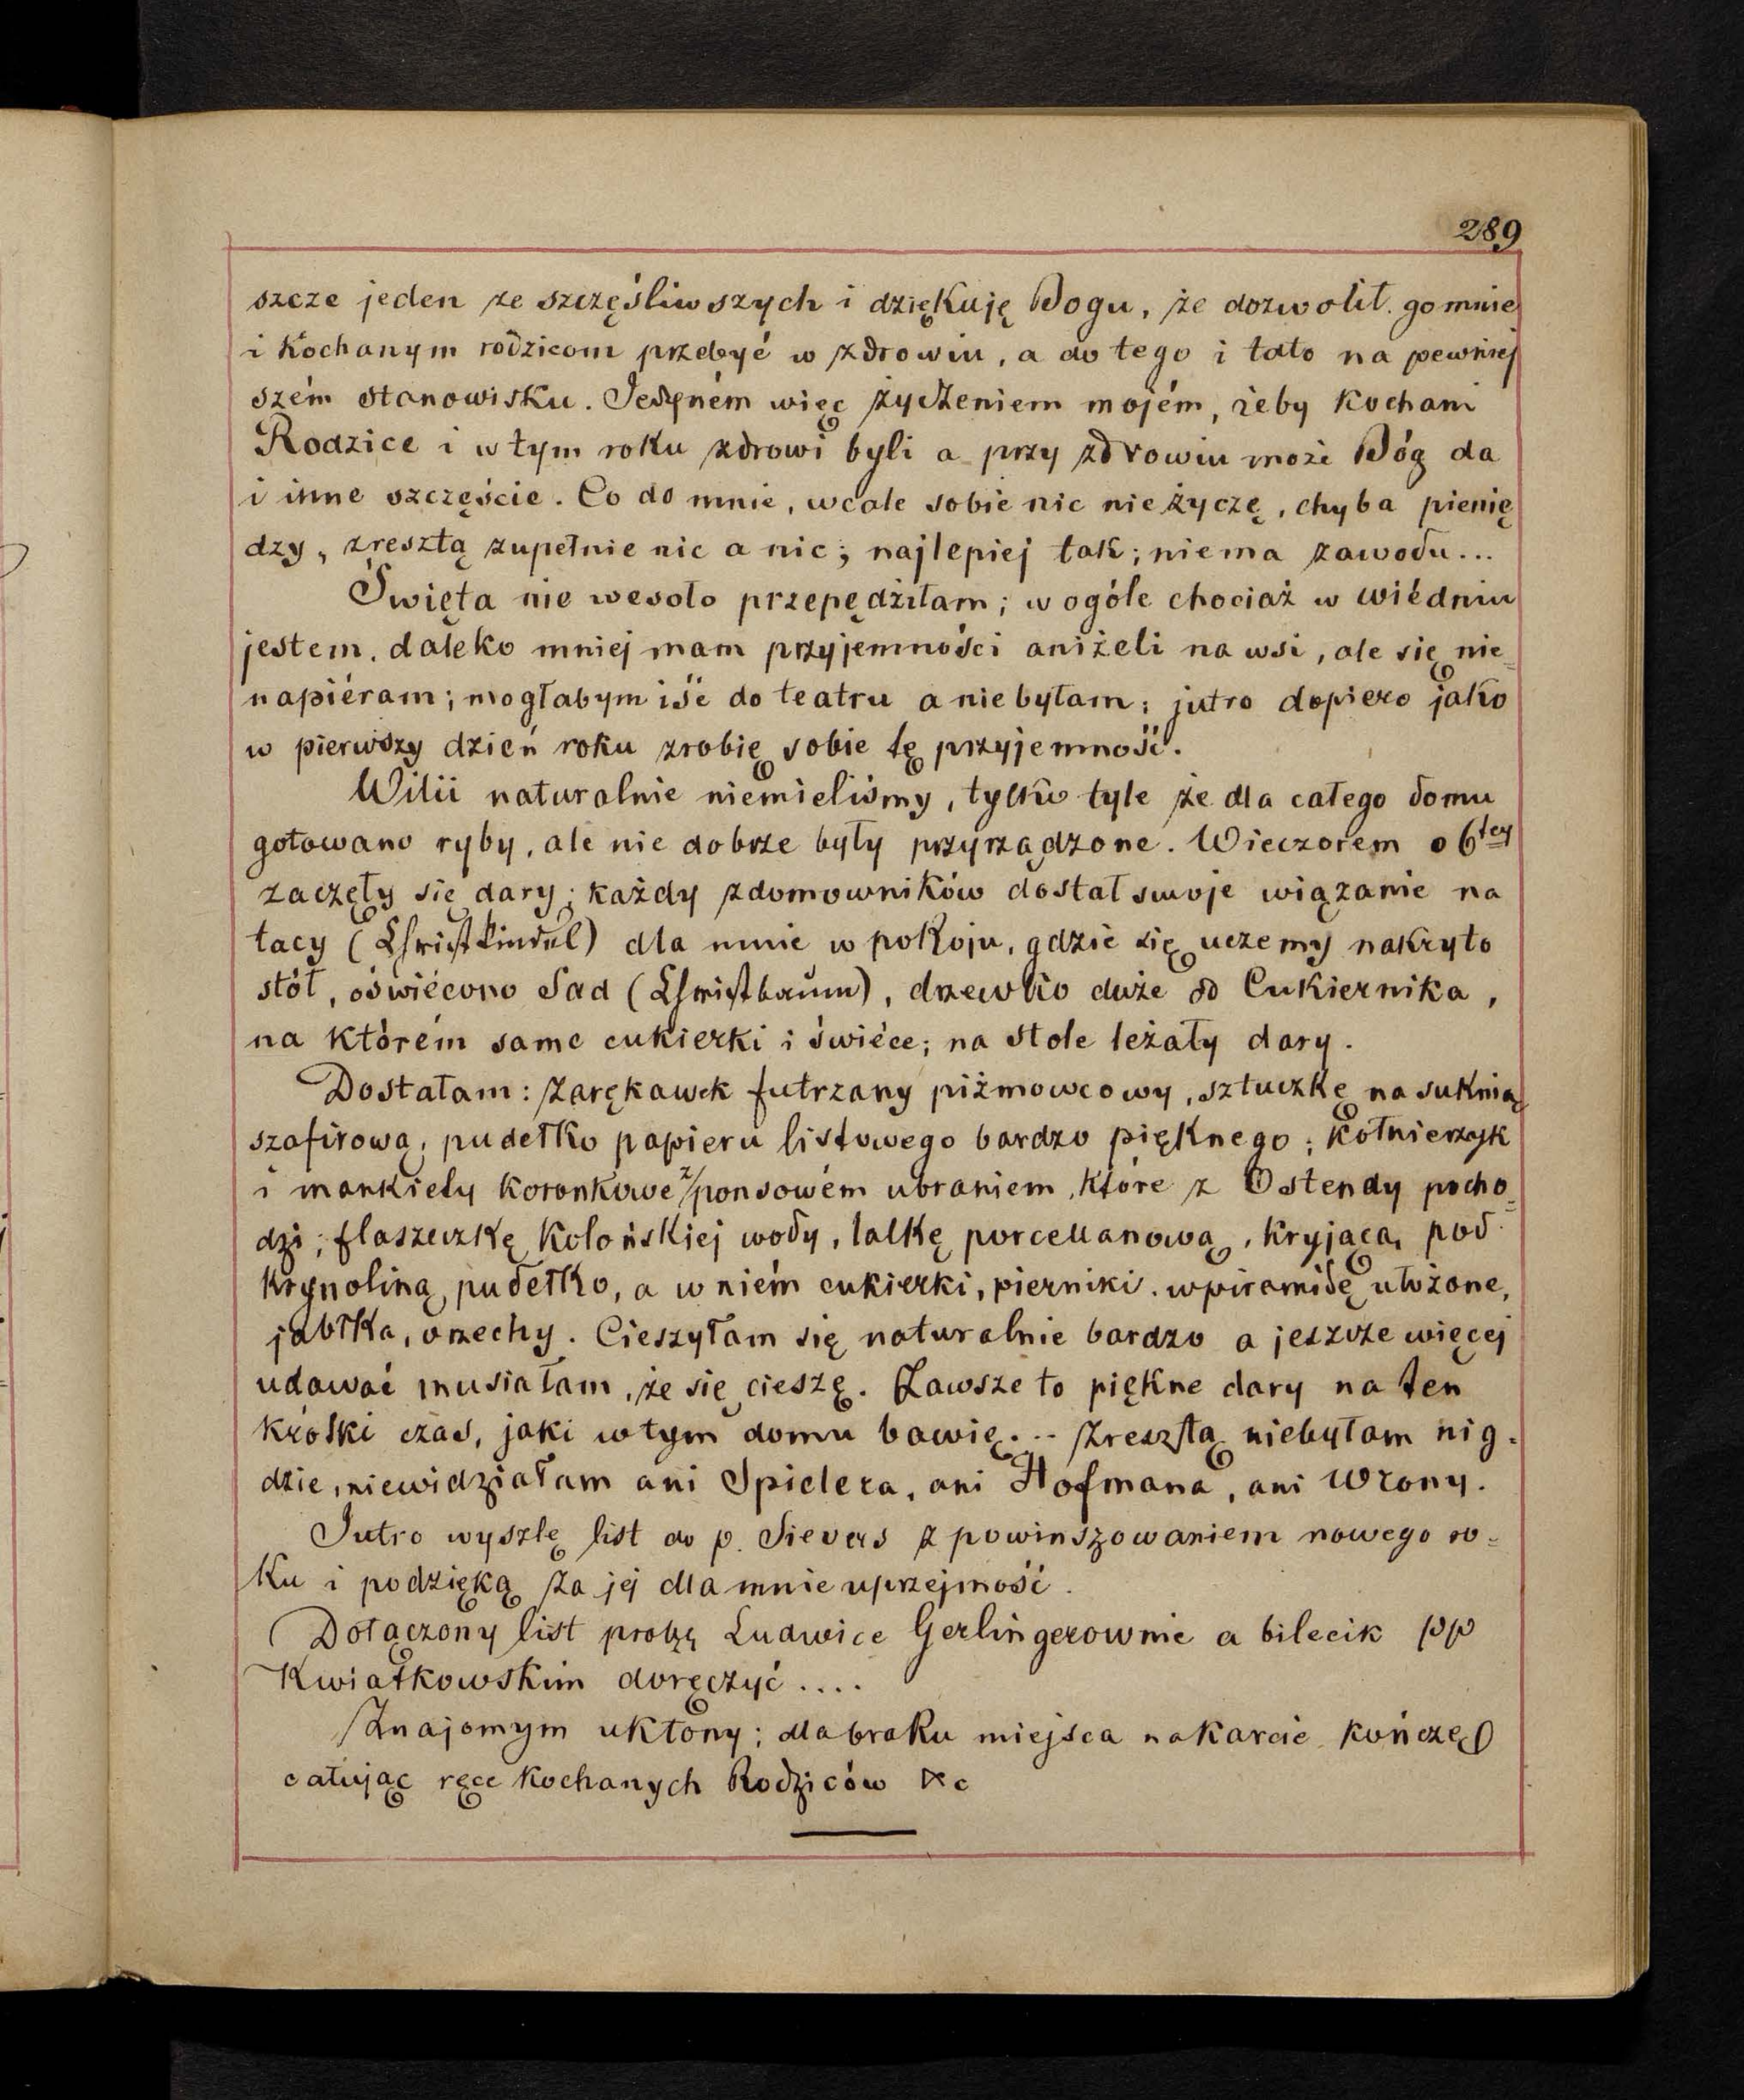 289
szcze jeden ze szczęśliwszych i dziękuję Bogu, że dozwolił go mnie
i kochanym rodzicom przebyć w zdrowiu, a do tego i tato na pewniej
szém stanowisku. Jedyném więc życzeniem mojém, żeby kochani
Rodzice i w tym roku zdrowi byli a przy zdrowiu może Bóg da
i inne szczęście. Co do mnie, wcale sobie nic nie życzę, chyba pienię
dzy, zresztą zupełnie nic a nic; najlepiej tak; niema zawodu...
Święta nie wesoło przepędziłam; w ogóle chociaż w wiédniu
jestem, daleko mniej mam przyjemności aniżeli na wsi, ale się nie=
napiéram; mogłabym iść do teatru a nie byłam; jutro dopiero jako
w pierwszy dzień roku zrobię sobie tę przyjemność.
Wilii naturalnie niemieliśmy, tylko tyle że dla całego domu
gotowano ryby, ale nie dobrze były przyrządzone. Wieczorem o 6tej
zaczęły się dary; każdy z domowników dostał swoje wiązanie na
tacy (Christkindel) dla mnie w pokoju, gdzie się uczemy nakryto
stół, oświécono Sad (Christbaum), drzewko duże od Cukiernika,
na którém same cukierki i świéce; na stole leżały dary.
Dostałam: zarękawek futrzany piżmowcowy, sztuczkę na suknią
szafirową, pudełko papieru listowego bardzo pięknego; kołnierzyk
i mankiety koronkowe z/ponsowém ubraniem, które z Ostendy pocho=
dzi; flaszeczkę kolońskiej wody, lalkę porcellanową, kryjącą pod
krynoliną pudełko, a w niém cukierki, pierniki. w piramidę ułożone,
jabłka, orzechy. Cieszyłam się naturalnie bardzo a jeszcze więcej
udawać musiałam, że się cieszę. Zawsze to piękne dary na ten
krótki czas, jaki w tym domu bawię... Zresztą niebyłam nig=
dzie, niewidziałam ani Spielera, ani Hofmana, ani Wrony.
Jutro wyszlę list do p. Sievers z powinszowaniem nowego ro=
ku i podzięką za jej dla mnie uprzejmość.
Dołączony list proszę Ludwice Gerlingerownie a bilecik pp
Kwiatkowskim doręczyć....
Znajomym ukłony; dla braku miejsca na karcie kończę
całując ręce kochanych Rodziców &c